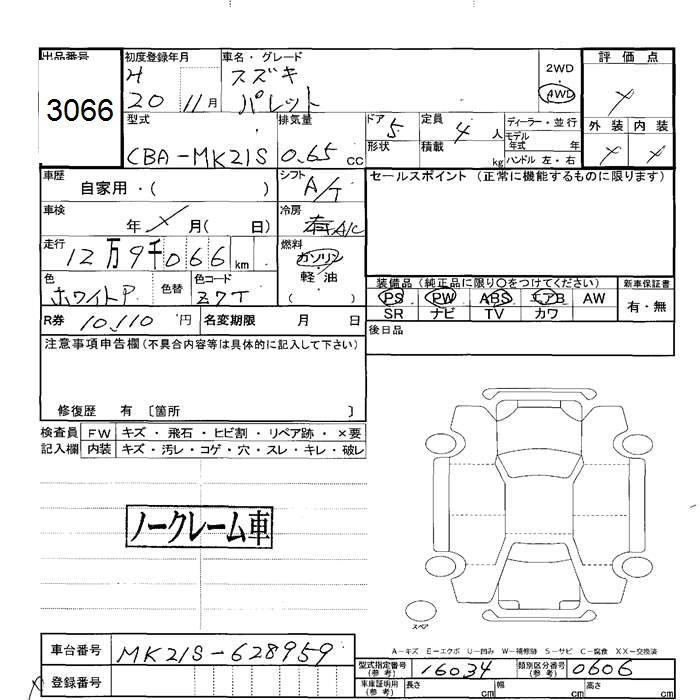 出品番号
3066
初度登録年月
H
20 11月
車名・グレード
スズキ
パレット
2WD
4WD
評価点
外装 内装
型式
CBA-MK21S
排気量
0.65 cc
ドア 5
形状
定員 4 人
積載 kg
ディーラー・並行
モデル年式 年
ハンドル 左・右
車歴
自家用・( )
シフト
A/T
セールスポイント (正常に機能するものに限ります)
車検
年 月( 日)
冷房
有 A/C
走行
12万9千066 km
燃料
ガソリン
軽・油
( )
色
ホワイトP
色替
色コード
Z7T
装備品(純正品に限り○をつけてください)
新車保証書
PS PW ABS エアB AW
SR ナビ TV カワ
有・無
R券 10,110 円
名変期限 月 日
後日品
注意事項申告欄(不具合内容等は具体的に記入して下さい)
修復歴 有 〔箇所 〕
検査員記入欄
FW キズ・飛石・ヒビ割・リペア跡・×要
内装 キズ・汚レ・コゲ・穴・スレ・キレ・破レ
ノークレーム車
スペア
A-キズ E-エクボ U-凹み W-補修跡 S-サビ C-腐食 XX-交換済
車台番号 MK21S-628959
登録番号
型式指定番号(参考) 16034
類別区分番号(参考) 0606
車庫証明用(参考) 長さ cm 幅 cm 高さ cm